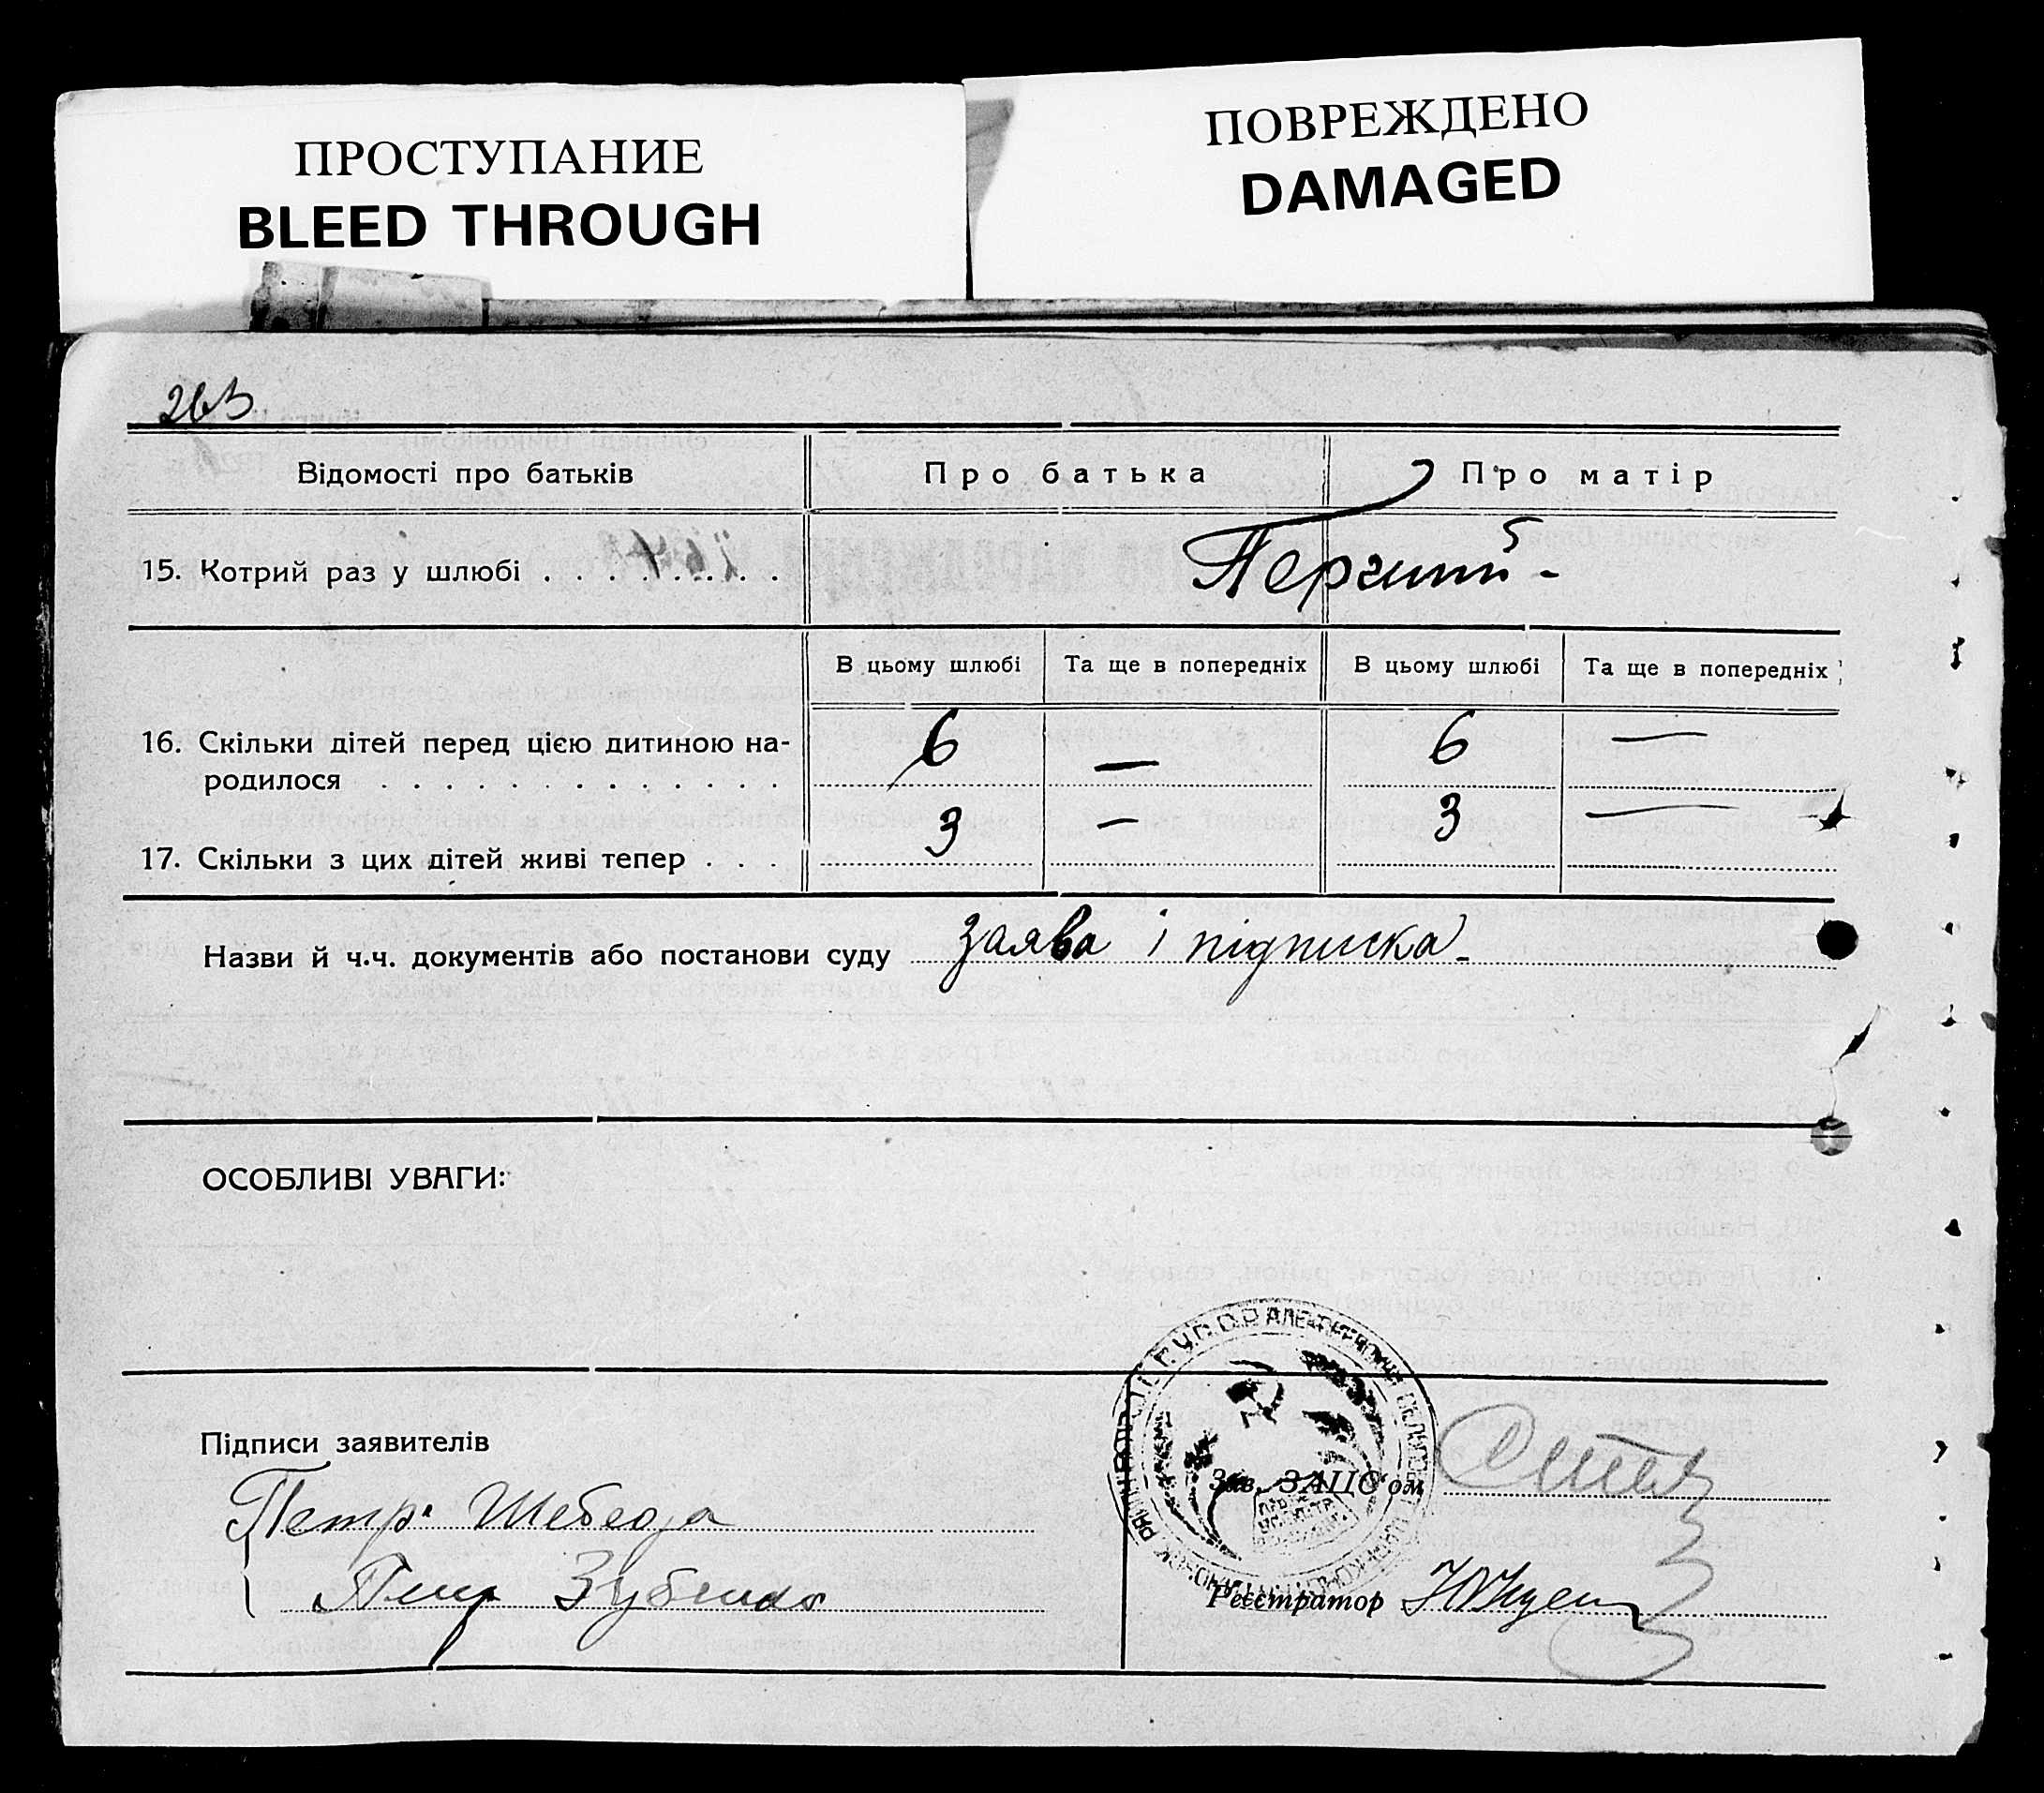 ПРОСТУПАНИЕ
BLEED THROUGH
ПОВРЕЖДЕНО
DAMAGED
263
Відомості про батьків Про батька Про матір
15. Котрий раз у шлюбі . . . . . . . . Перший -
В цьому шлюбі Та ще в попередніх В цьому шлюбі Та ще в попередніх
16. Скільки дітей перед цією дитиною на-
родилося . . . . . . . . . . . . . 6 — 6 —
17. Скільки з цих дітей живі тепер . . . 3 — 3 —
Назви й ч.ч. документів або постанови суду заява і підписка -
ОСОБЛИВІ УВАГИ:
Підписи заявителів
Зав. ЗАЦС'ом
Петр
Зубенко
Реєстратор